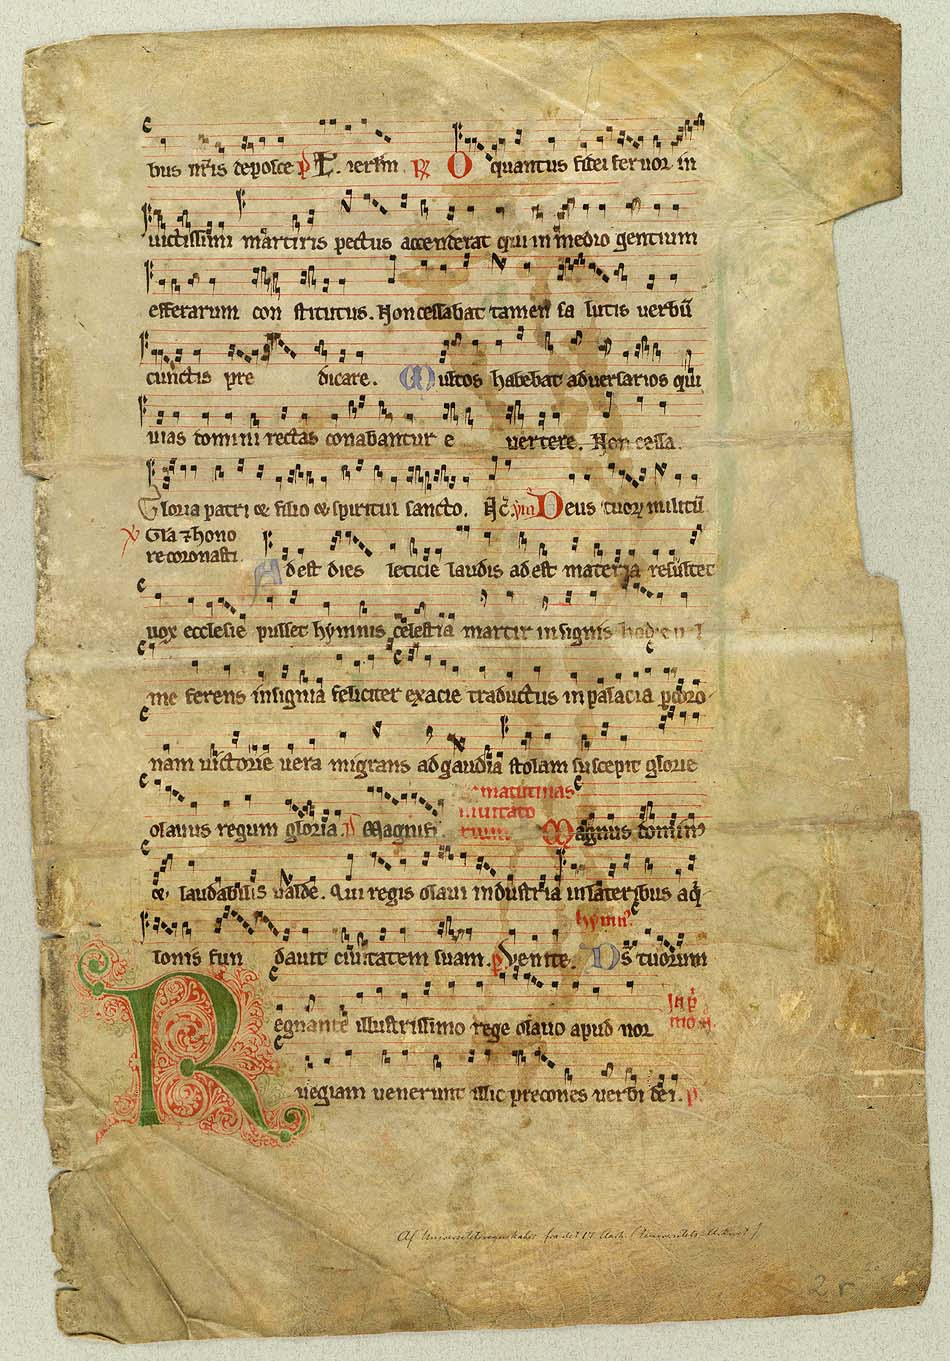 bus nr̄is deposce p̄ L. ierlm ℟ O quantus fidei feruor in
uictissimi martiris pectus accenderat qui in medio gentium
efferarum con stitutus. Non cessabat tamen sa lutis uerbū
cunctis pre dicare. Multos habebat aduersarios qui
uias domini rectas conabantur e uertere. Non cessa.
Gloria patri & filio & spiritui sancto. Deus tuoꝝ militū
Gl̄a ⁊ hono
re coronasti. Adest dies leticie laudis adest materia resultet
uox ecclesie pulset hymnis celestia martir insignis hodie
me ferens insignia feliciter exacie traductus in palacia
nam uictorie uera migrans ad gaudia stolam suscepit glorie
olauus regum gloria. Magnif. matutinas
inuitato
rium Magnus domin
& laudabilis ualde. Qui regis olaui industria in lateribus aq̄
lonis fun dauit ciuitatem suam. p̄ Venite. hymn⁹. Ds̄ tuorum
Regnante illustrissimo rege olauo apud nor
In p̄
mo
uegiam uenerunt illic precones uerbi dei. p̄
Af Universitetsregnskaber fra det 17 Aarh. (Universitets-Arkivet)
2 r